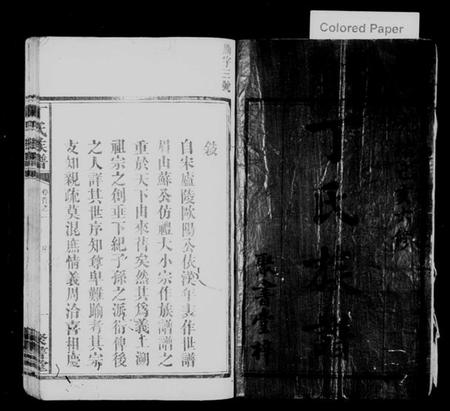 Colored Paper
丁氏族譜
聚書堂梓
字三號
敍
自宋廬陵歐陽公依漢年表作世譜
眉山蘇公仿禮大小宗作族譜譜之
重於天下由來舊矣然其爲義上溯
祖宗之創垂下紀子孫之派衍俾後
之人詳其世序知尊卑難踰者其宗
支知親疏莫混庶情義周洽喜相慶
丁氏族譜